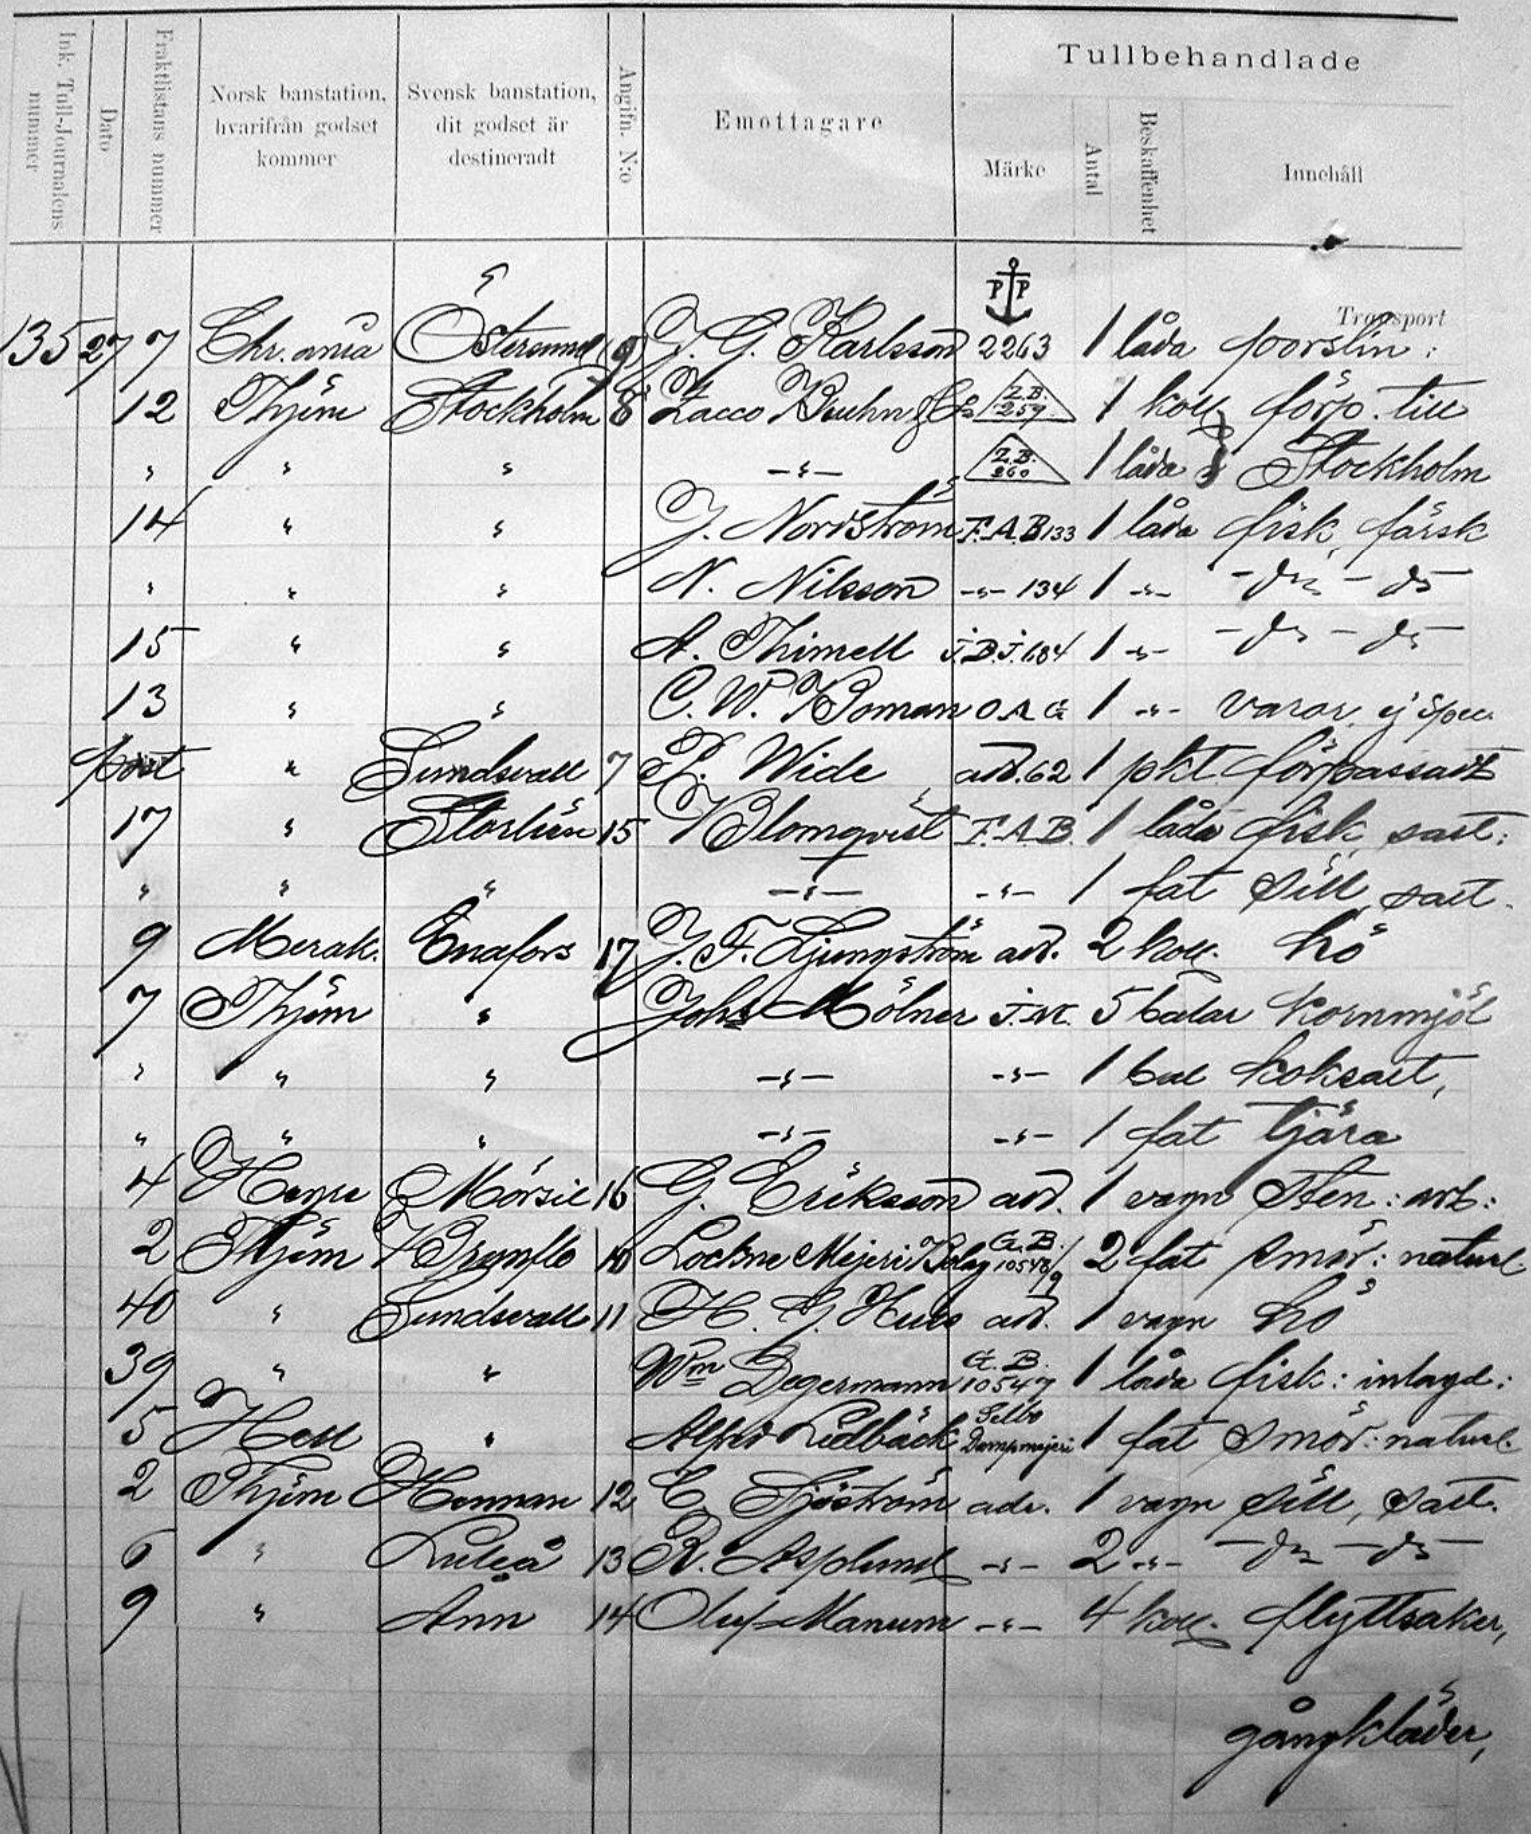 Tullbehandlade
Ink. Tull-Journalens nummer
Dato
Fraktlistans nummer
Norsk banstation, hvarifrån godset kommer
Svensk banstation, dit godset är destineradt
Angifn. N:o
Emottagare
Märke
Antal
Beskaffenhet
Innehåll
Transport
P P
135 27 7 Chr.ania Östersund 9 J. G. Karlsson 2263 1 låda porslin:
12 Thjem Stockholm 8 Zacco Bruhn & Co Z.B. 259 1 koll. förp. till
" " " -"- Z.B. 260 1 låda Stockholm
14 " " J. Nordström F.A.B 133 1 låda fisk, färsk
" " " N. Nilsson -"- 134 1 -"- - do - do
15 " " A. Thimell J.D.J. 684 1 -"- - do - do
13 " " C. W. Boman O A G 1 -"- varor, ej spec.
post " Sundsvall 7 P. Wide adr. 62 1 pkt förpassadt
17 " Storlien 15 Blomqvist F.A.B. 1 låda fisk, salt:
" " " -"- -"- 1 fat sill, salt.
9 Merak. Enafors 17 J. F. Ljungström adr. 2 koll. hö
7 Thjem " Johs Mölner J.M. 5 balar kornmjöl
" " " -"- -"- 1 bal koksalt,
" " " -"- -"- 1 fat tjära
4 Mörsil 16 G. Eriksson adr. 1 vagn sten: arb:
2 Thjem Brunflo 10 Lockne Mejeri Bolag G.B. 10548/9 2 fat smör: naturl.
40 " Sundsvall 11 H. G. adr. 1 vagn hö
39 " " Wm Degermann G.B. 10547 1 låda fisk: inlagd:
5 Hell " Alfred Lidbäck Selbo Dampmejeri 1 fat smör: naturl.
2 Thjem 12 C. Sjöström adr. 1 vagn sill, salt.
6 " Luleå 13 R. Asplund -"- 2 -"- - do - do
9 " Ånn 14 Oluf Manum -"- 4 koll. flyttsaker,
gångkläder,